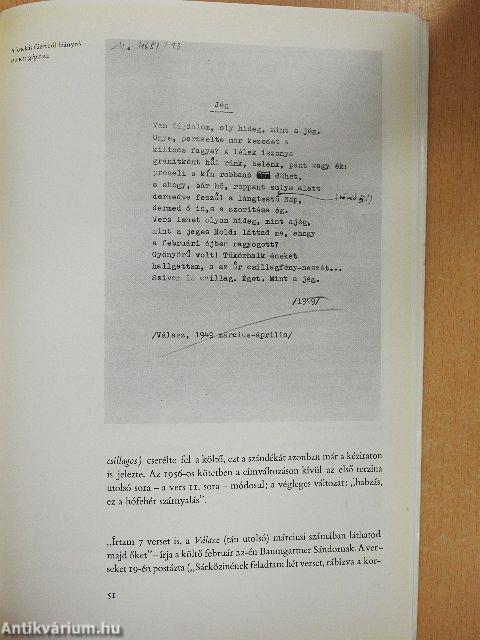 A kockás füzetből hiányzó
szonett gépirata
M. 4651/13
Jég
Van fájdalom, oly hideg, mint a jég.
Ugye, perzselte már kezedet a
kilincs fagya? A lélek iszonya
gránitként hűl ránk, belénk, pánt vagy ék:
préseli a kín robbanó dühét,
s ahogy, bár hő, roppant sulya alatt
dermedve feszül a lángtestű Nap,
dermed ő is, s a szorítása ég.
Vers lehet olyan hideg, mint ajég,
mint a jeges Hold: láttad me, ahogy
a februári éjben ragyogott?
Gyönyörű volt! Tükörhalk énekét
hallgattam, s az űr csillagfény-neszét...
Szivem is csillag. Éget. Mint a jég.
/1949/
/Válasz, 1949 március-április/
csillagos) cserélte fel a költő, ezt a szándékát azonban már a kéziraton
is jelezte. Az 1956-os kötetben a címváltozáson kívül az első terzina
utolsó sora – a vers 11. sora – módosul; a végleges változat: „habzás,
ez a hófehér szárnyalás”.
„Írtam 7 verset is, a Válasz (tán utolsó) márciusi számában láthatod
majd őket” – írja a költő február 22-én Baumgartner Sándornak. A ver-
seket 19-én postázta („Sárközinének feladtam hét verset, rábízva a kor-
51
Antikvárium.hu